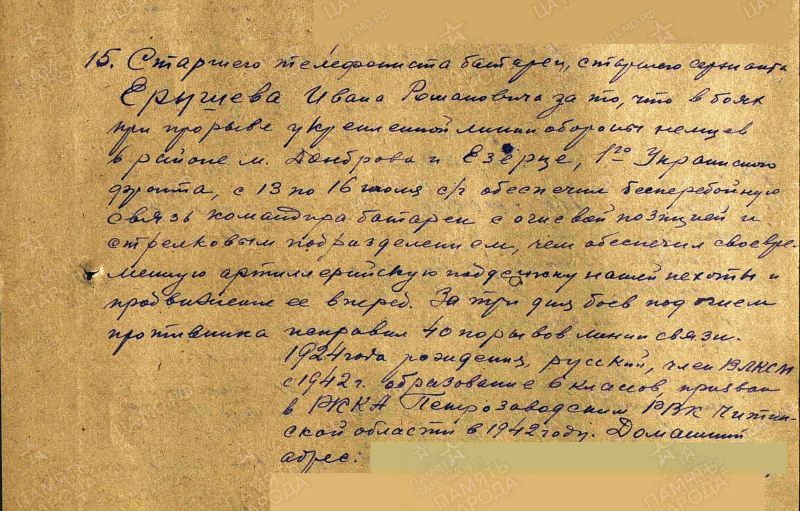 15. Старшего телефониста батареи, старшего сержанта
Ерычева Ивана Романовича за то, что в боях
при прорыве укрепленной линии обороны немцев
в районе м. Домброва и Езерце, 1го Украинского
фронта, с 13 по 16 июля с/г обеспечил бесперебойную
связь командира батареи с огневой позицией и
стрелковым подразделением, чем обеспечил своевре-
менную артиллерийскую поддержку нашей пехоты и
продвижение ее вперед. За три дня боев под огнем
противника исправил 40 порывов линии связи.
1924 года рождения, русский, член ВЛКСМ
с 1942 г. образование 6 классов, призван
в РККА Петрозаводским РВК Читин-
ской области в 1942 году. Домашний
адрес: